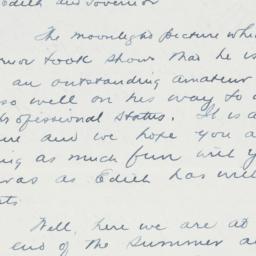 Edith and Governor
The moonlight picture whi
nor took shows that he is
an outstanding amateur
so well on his way to
professional status. It is a
ure and we hope you a
ing as much fun with y
ras as Edith has with
ts.
Well, here we are at
end of the summer a